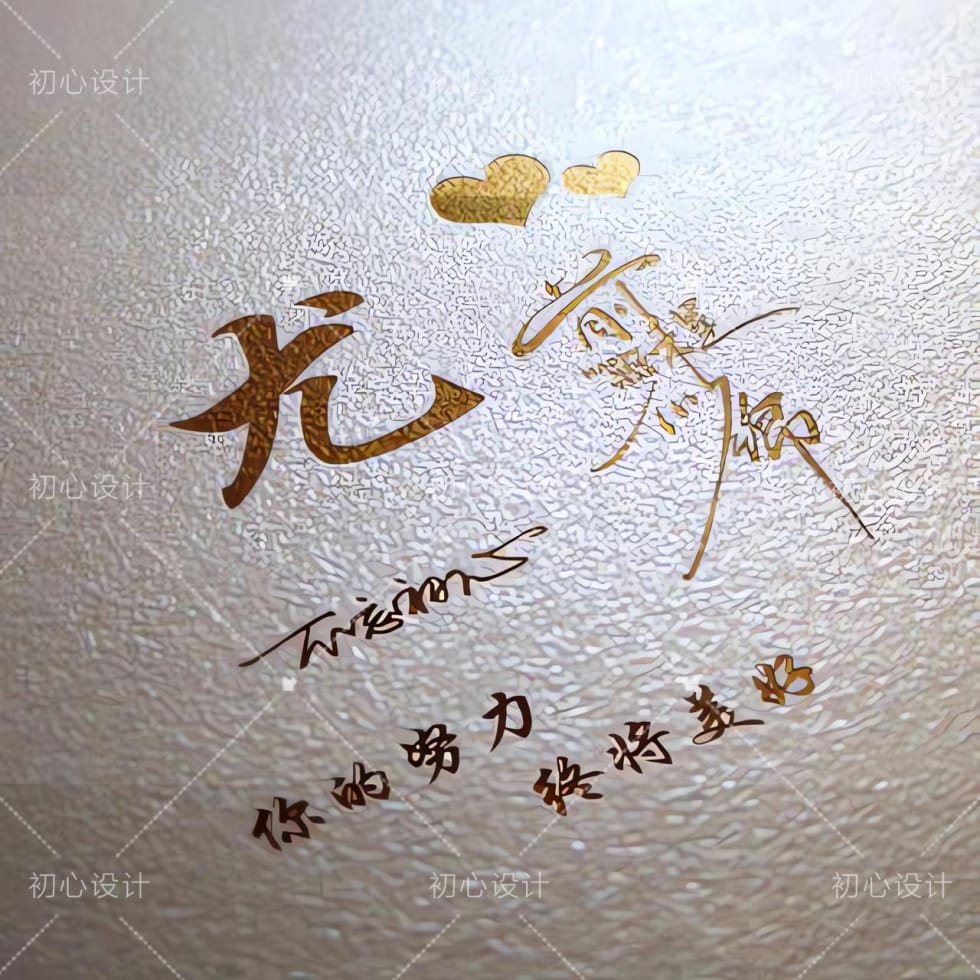 初心设计 初心设计 初心设计
尤
不忘初心
你的努力
终将美好
初心设计
初心设计 初心设计 初心设计